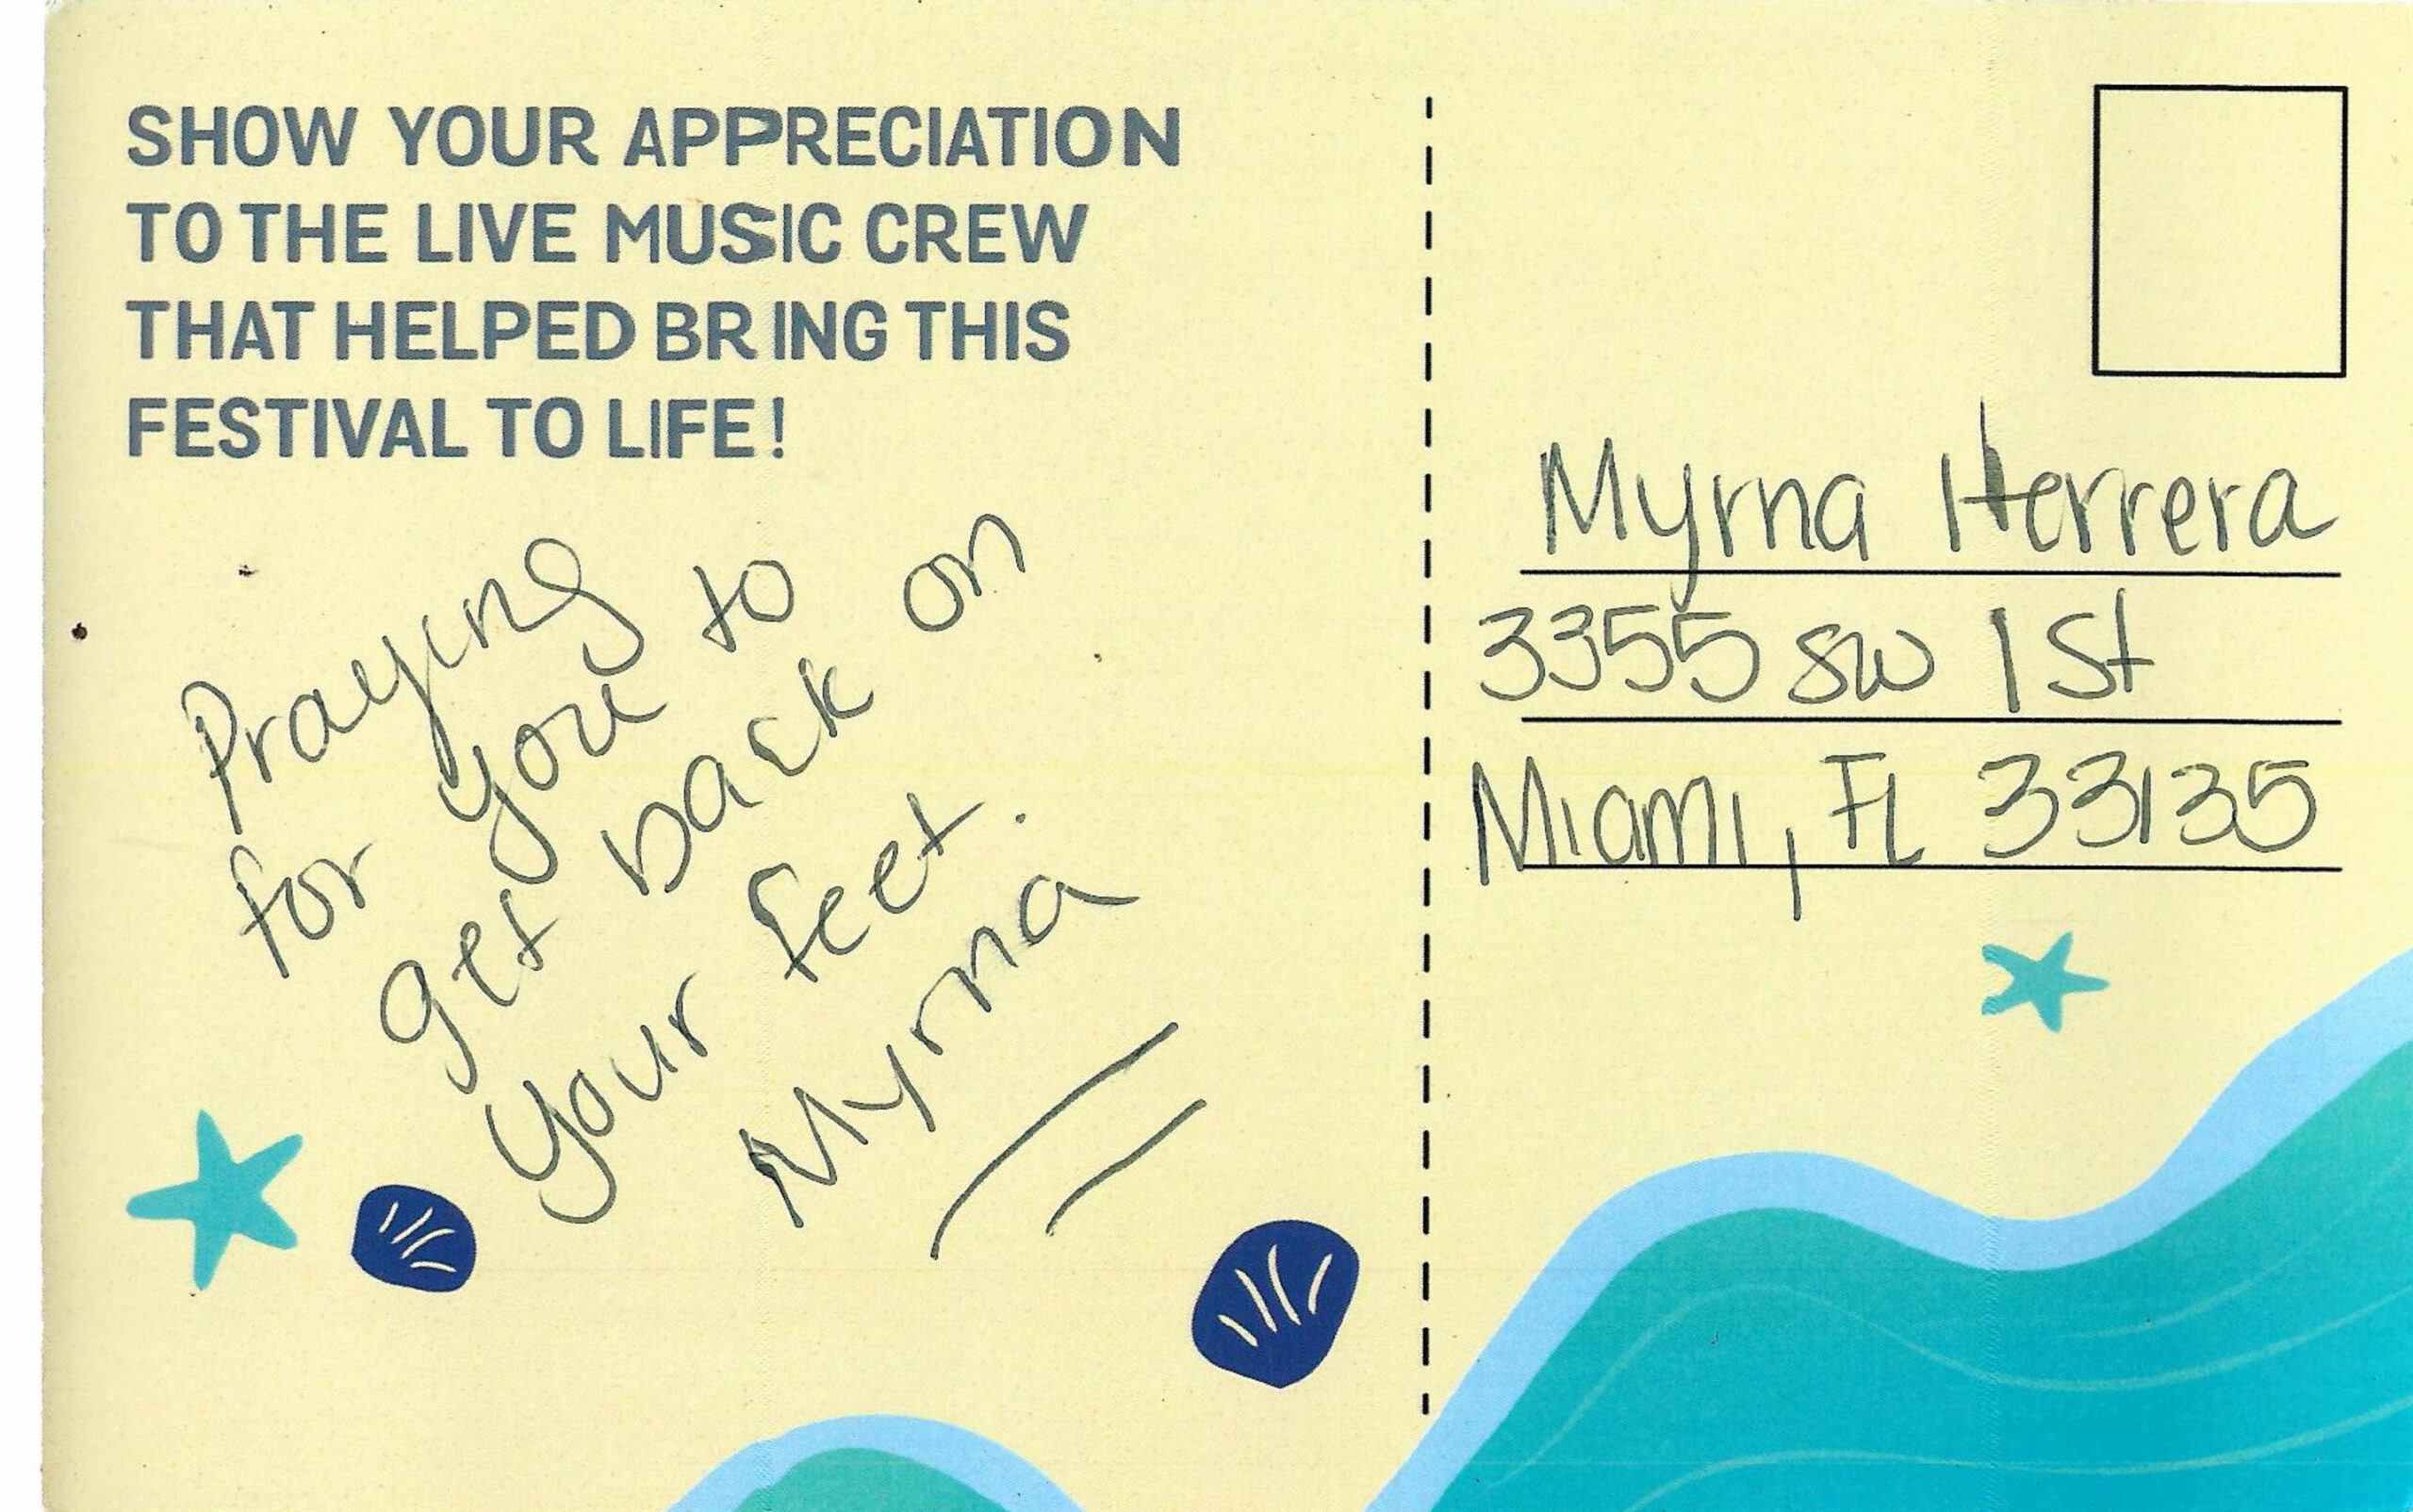 SHOW YOUR APPRECIATION
TO THE LIVE MUSIC CREW
THAT HELPED BRING THIS
FESTIVAL TO LIFE!
Praying
for you to
get back on
your feet.
Myrna
Myrna Herrera
3355 SW 1 St
Miami, FL 33135